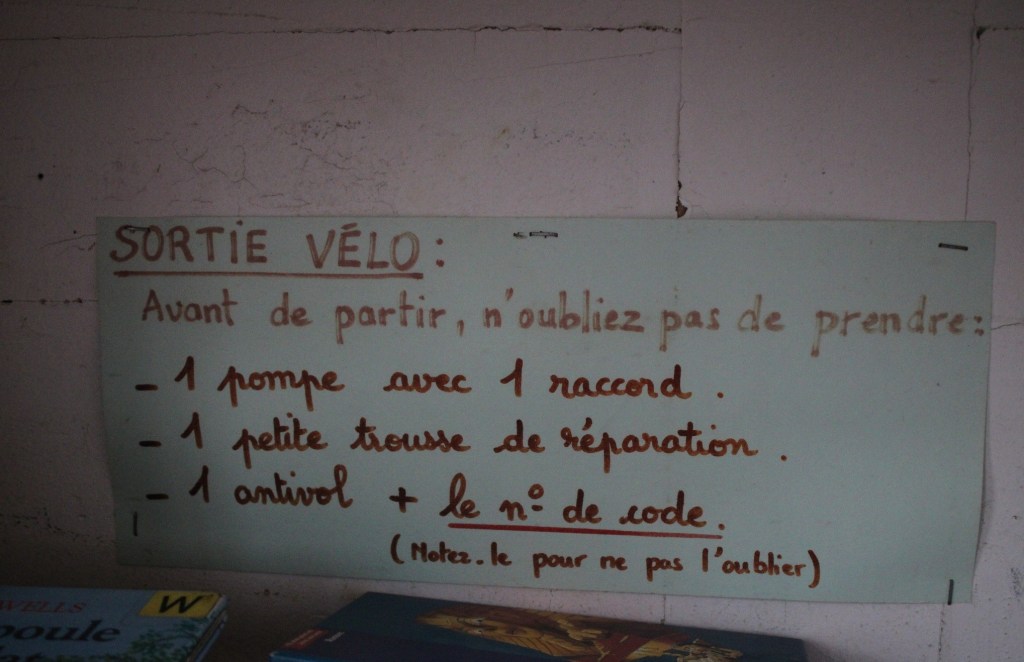 SORTIE VÉLO :
Avant de partir, n'oubliez pas de prendre :
- 1 pompe avec 1 raccord .
- 1 petite trousse de réparation .
- 1 antivol + le nº de code .
(Notez-le pour ne pas l'oublier)
WELLS
W
poule